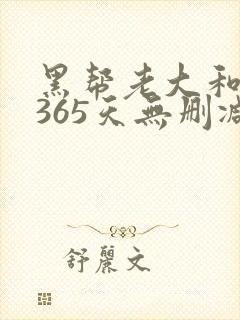 黑帮老大和
365天無删减
舒麗文